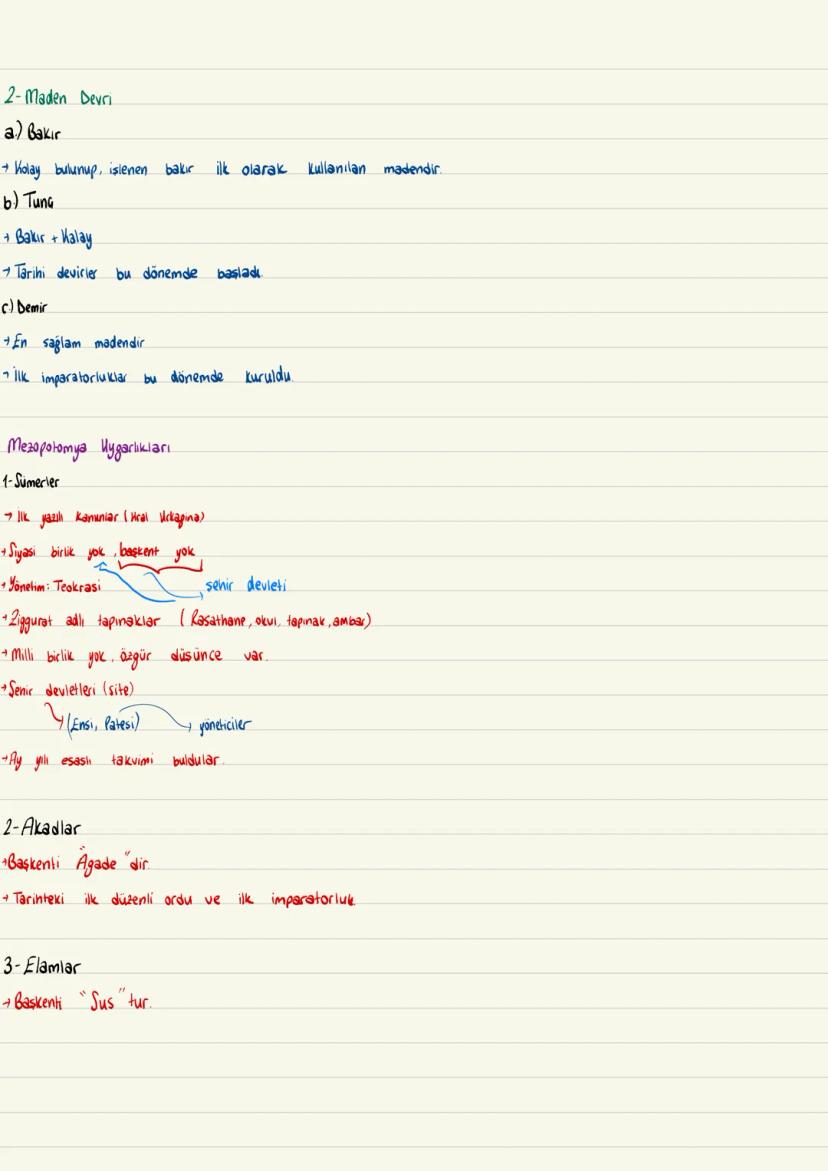 2- Maden Devri
a.) Bakır
→ Kolay bulunup, işlenen bakır ilk olarak kullanılan madendir.
b.) Tunç
→ Bakır + Kalay
→ Tarihi devirler bu dönemde başladı.
c.) Demir
→ En sağlam madendir
→ İlk imparatorluklar bu dönemde kuruldu.
Mezopotomya Uygarlıkları
1- Sümerler
→ İlk yazılı kanunlar (Kral Urkagina)
→ Siyasi birlik yok, başkent yok
→ Yönetim: Teokrasi şehir devleti
→ Ziggurat adlı tapınaklar (Rasathane, okul, tapınak, ambar)
→ Milli birlik yok, özgür düşünce var.
→ Şehir devletleri (site)
(Ensi, Patesi) → yöneticiler
→ Ay yılı esaslı takvimi buldular.
2- Akadlar
→ Başkenti "Agade" dir.
→ Tarihteki ilk düzenli ordu ve ilk imparatorluk.
3- Elamlar
→ Başkenti "Sus" tur.